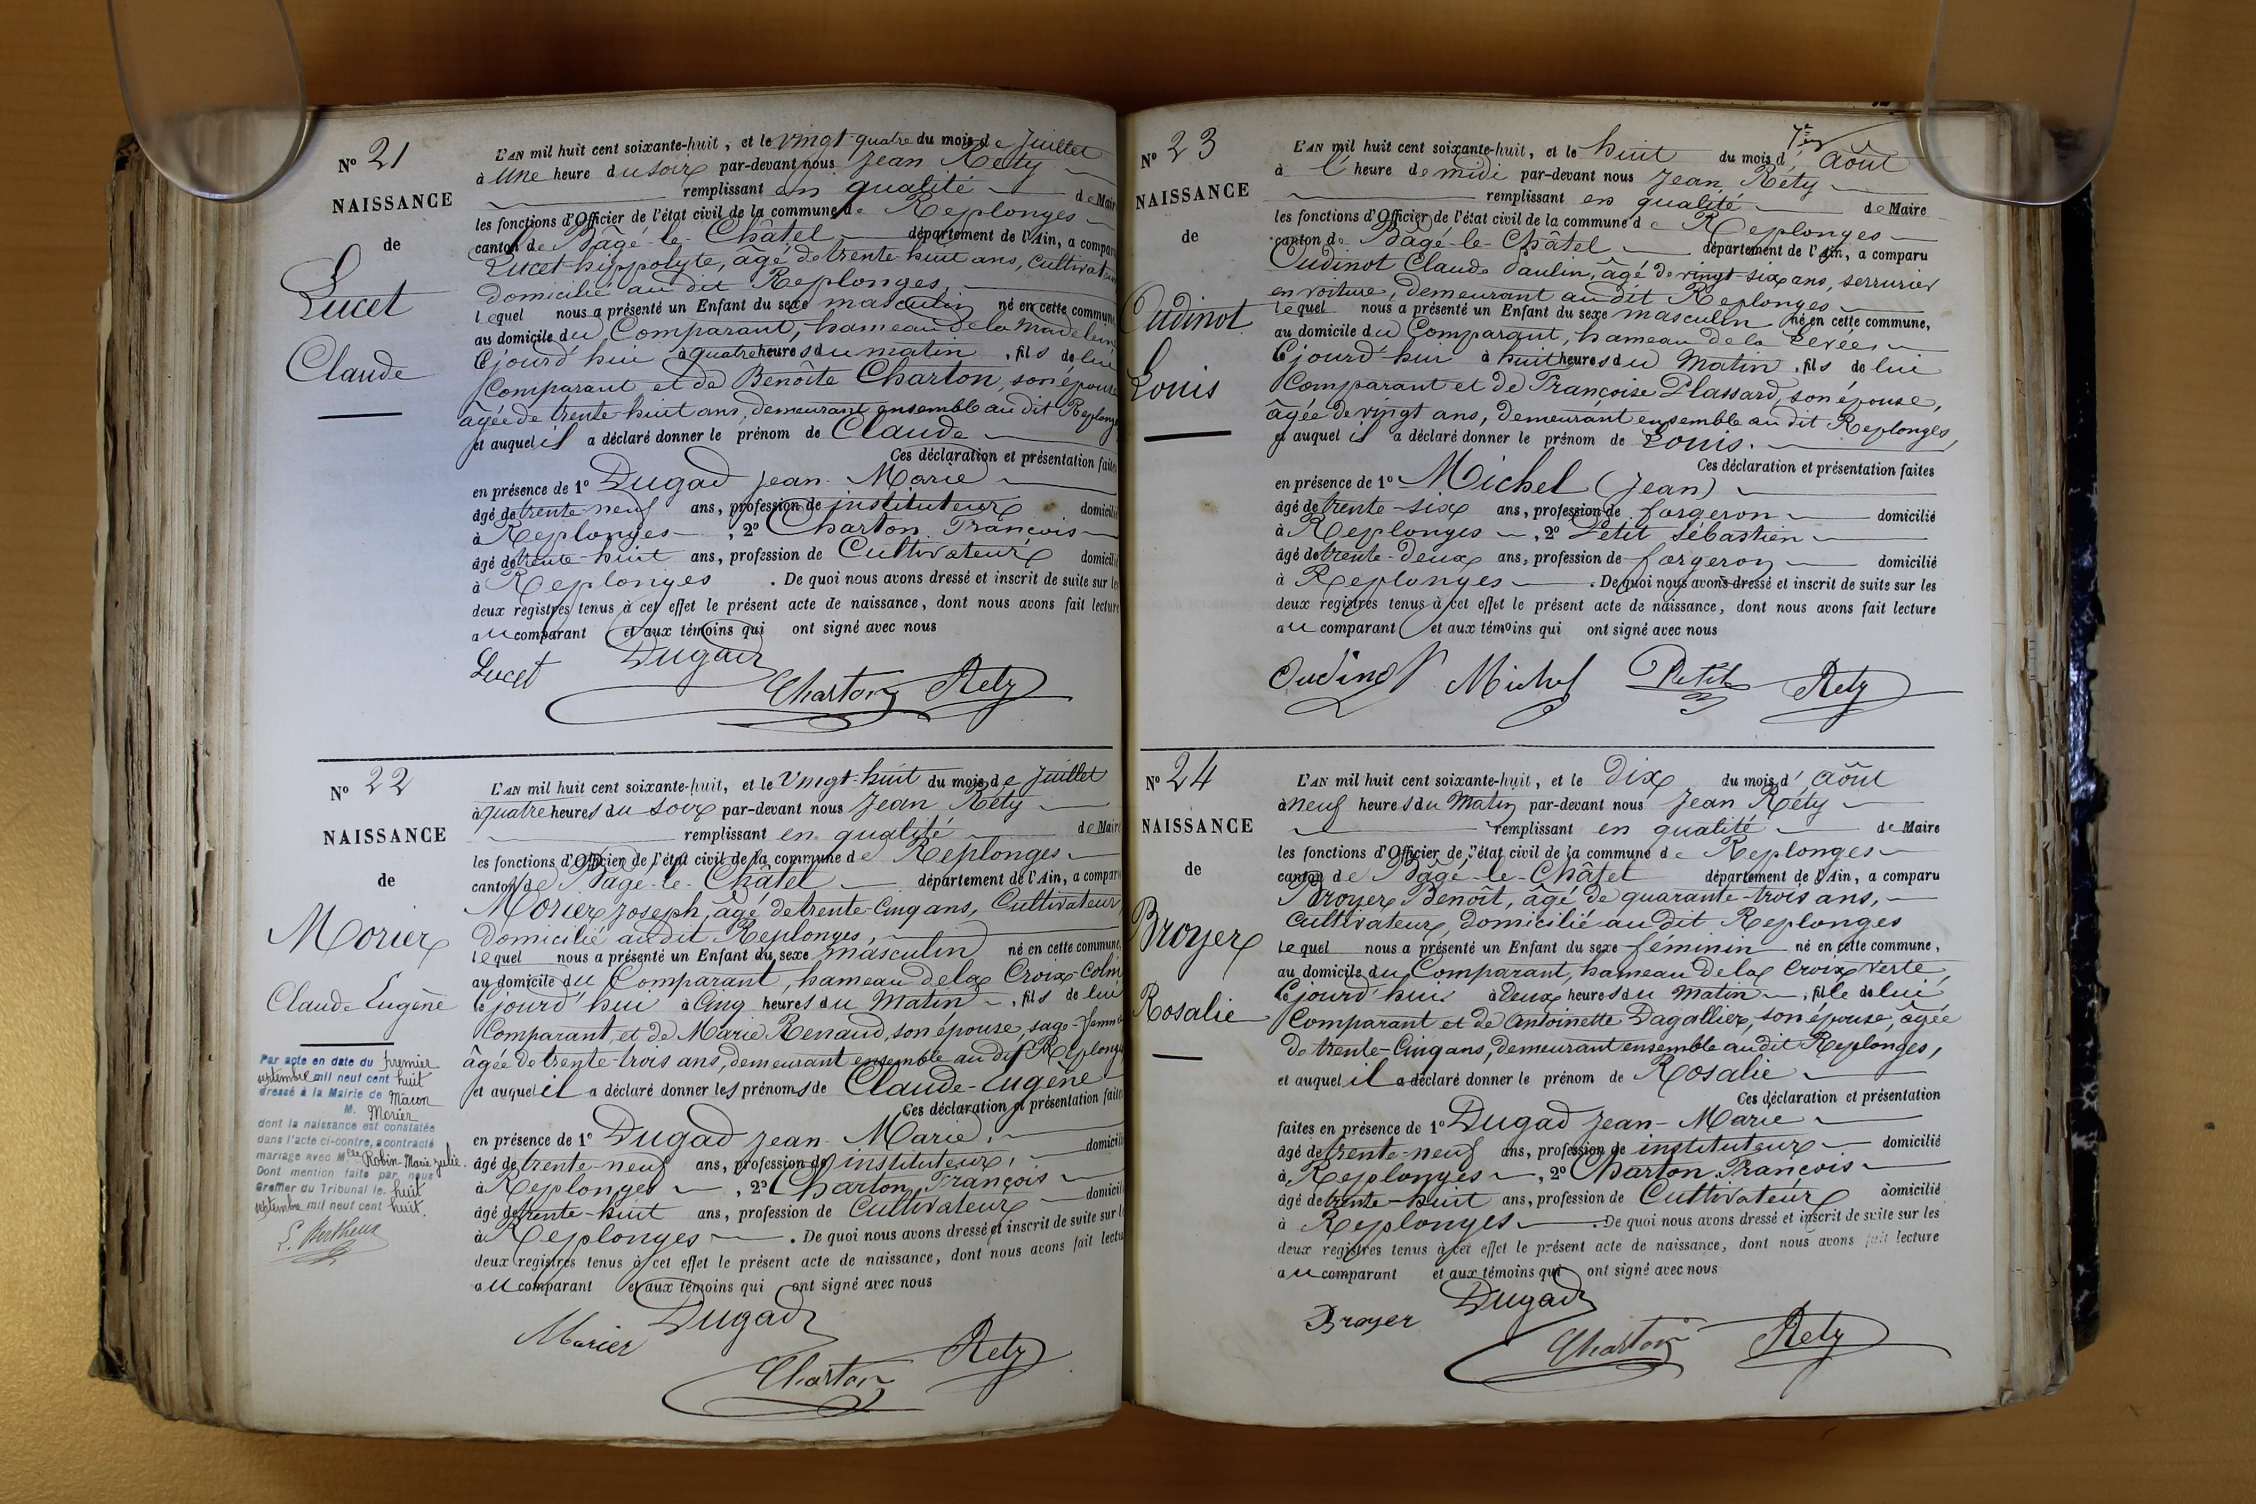 N° 21
NAISSANCE
de
Lucet
Claude
L'AN mil huit cent soixante-huit, et le vingt-quatre du mois de Juillet
à une heure du soir par-devant nous Jean Réty
remplissant en qualité de Maire
les fonctions d'Officier de l'état civil de la commune de Replonges
canton de Bâgé-le-Châtel département de l'Ain, a comparu
Lucet hippolyte, âgé de trente huit ans, cultivateur
domicilié au dit Replonges,
lequel nous a présenté un Enfant du sexe masculin né en cette commune,
au domicile du Comparant, hameau de la Madeleine
Cejourd'hui à quatre heures du matin, fils de lui
Comparant et de Benoîte Charton, son épouse
âgée de trente huit ans, demeurant ensemble au dit Replonges
et auquel il a déclaré donner le prénom de Claude
Ces déclaration et présentation faites
en présence de 1° Dugad Jean-Marie
âgé de trente-neuf ans, profession de instituteur domicilié
à Replonges, 2° Charton François
âgé de trente-huit ans, profession de Cultivateur domicilié
à Replonges. De quoi nous avons dressé et inscrit de suite sur les
deux registres tenus à cet effet le présent acte de naissance, dont nous avons fait lecture
au comparant et aux témoins qui ont signé avec nous
Lucet Dugad
Charton Rety
N° 22
NAISSANCE
de
Morier
Claude Eugène
Par acte en date du premier
septembre mil neuf cent huit
dressé à la Mairie de Macon
M. Morier
dont la naissance est constatée
dans l'acte ci-contre, a contracté
mariage avec Mlle Robin Marie Julie.
Dont mention faite par nous
Greffier du Tribunal le huit
septembre mil neuf cent huit.
L'AN mil huit cent soixante-huit, et le Vingt-huit du mois de Juillet
à quatre heures du soir par-devant nous Jean Réty
remplissant en qualité de Maire
les fonctions d'Officier de l'état civil de la commune de Replonges
canton de Bâgé-le-Châtel département de l'Ain, a comparu
Morier Joseph, âgé de trente-Cinq ans, Cultivateur,
domicilié au dit Replonges,
lequel nous a présenté un Enfant du sexe masculin né en cette commune,
au domicile du Comparant, hameau de la Croix-Colin
Cejourd'hui à Cinq heures du Matin, fils de lui
Comparant, et de Marie Renaud, son épouse, sage-femme
âgée de trente-trois ans, demeurant ensemble au dit Replonges
et auquel il a déclaré donner les prénoms de Claude-Eugène
Ces déclaration et présentation faites
en présence de 1° Dugad Jean-Marie,
âgé de trente-neuf ans, profession de instituteur, domicilié
à Replonges, 2° Charton François
âgé de trente-huit ans, profession de Cultivateur domicilié
à Replonges. De quoi nous avons dressé et inscrit de suite sur les
deux registres tenus à cet effet le présent acte de naissance, dont nous avons fait lecture
au comparant et aux témoins qui ont signé avec nous
Morier Dugad
Charton Rety
N° 23
NAISSANCE
de
Oudinot
Louis
L'AN mil huit cent soixante-huit, et le huit du mois d'Août
à l'heure de midi par-devant nous Jean Réty
remplissant en qualité de Maire
les fonctions d'Officier de l'état civil de la commune de Replonges
canton de Bâgé-le-Châtel département de l'Ain, a comparu
Oudinot Claude Paulin, âgé de vingt-six ans, serrurier
en voiture, demeurant au dit Replonges
lequel nous a présenté un Enfant du sexe masculin né en cette commune,
au domicile du Comparant, hameau de la Levée,
Cejourd'hui à huit heures du Matin, fils de lui
Comparant et de Françoise Plassard, son épouse,
âgée de vingt ans, demeurant ensemble au dit Replonges,
et auquel il a déclaré donner le prénom de Louis.
Ces déclaration et présentation faites
en présence de 1° Michel (Jean)
âgé de trente-six ans, profession de forgeron domicilié
à Replonges, 2° Petit Sébastien
âgé de trente-deux ans, profession de forgeron domicilié
à Replonges. De quoi nous avons dressé et inscrit de suite sur les
deux registres tenus à cet effet le présent acte de naissance, dont nous avons fait lecture
au comparant et aux témoins qui ont signé avec nous
Oudinot Michel Petit Rety
N° 24
NAISSANCE
de
Broyer
Rosalie
L'AN mil huit cent soixante-huit, et le Dix du mois d'Août
à neuf heures du Matin par-devant nous Jean Réty
remplissant en qualité de Maire
les fonctions d'Officier de l'état civil de la commune de Replonges
canton de Bâgé-le-Châtel département de l'Ain, a comparu
Broyer Benoît, âgé de quarante-trois ans,
Cultivateur, domicilié au dit Replonges
lequel nous a présenté un Enfant du sexe féminin né en cette commune,
au domicile du Comparant, hameau de la Croix verte,
Cejourd'hui à Deux heures du Matin, fille de lui
Comparant et de Antoinette Dagallier, son épouse, âgée
de trente-Cinq ans, demeurant ensemble au dit Replonges,
et auquel il a déclaré donner le prénom de Rosalie
Ces déclaration et présentation
faites en présence de 1° Dugad Jean-Marie
âgé de trente-neuf ans, profession de instituteur domicilié
à Replonges, 2° Charton François
âgé de trente-huit ans, profession de Cultivateur domicilié
à Replonges. De quoi nous avons dressé et inscrit de suite sur les
deux registres tenus à cet effet le présent acte de naissance, dont nous avons fait lecture
au comparant et aux témoins qui ont signé avec nous
Broyer Dugad
Charton Rety